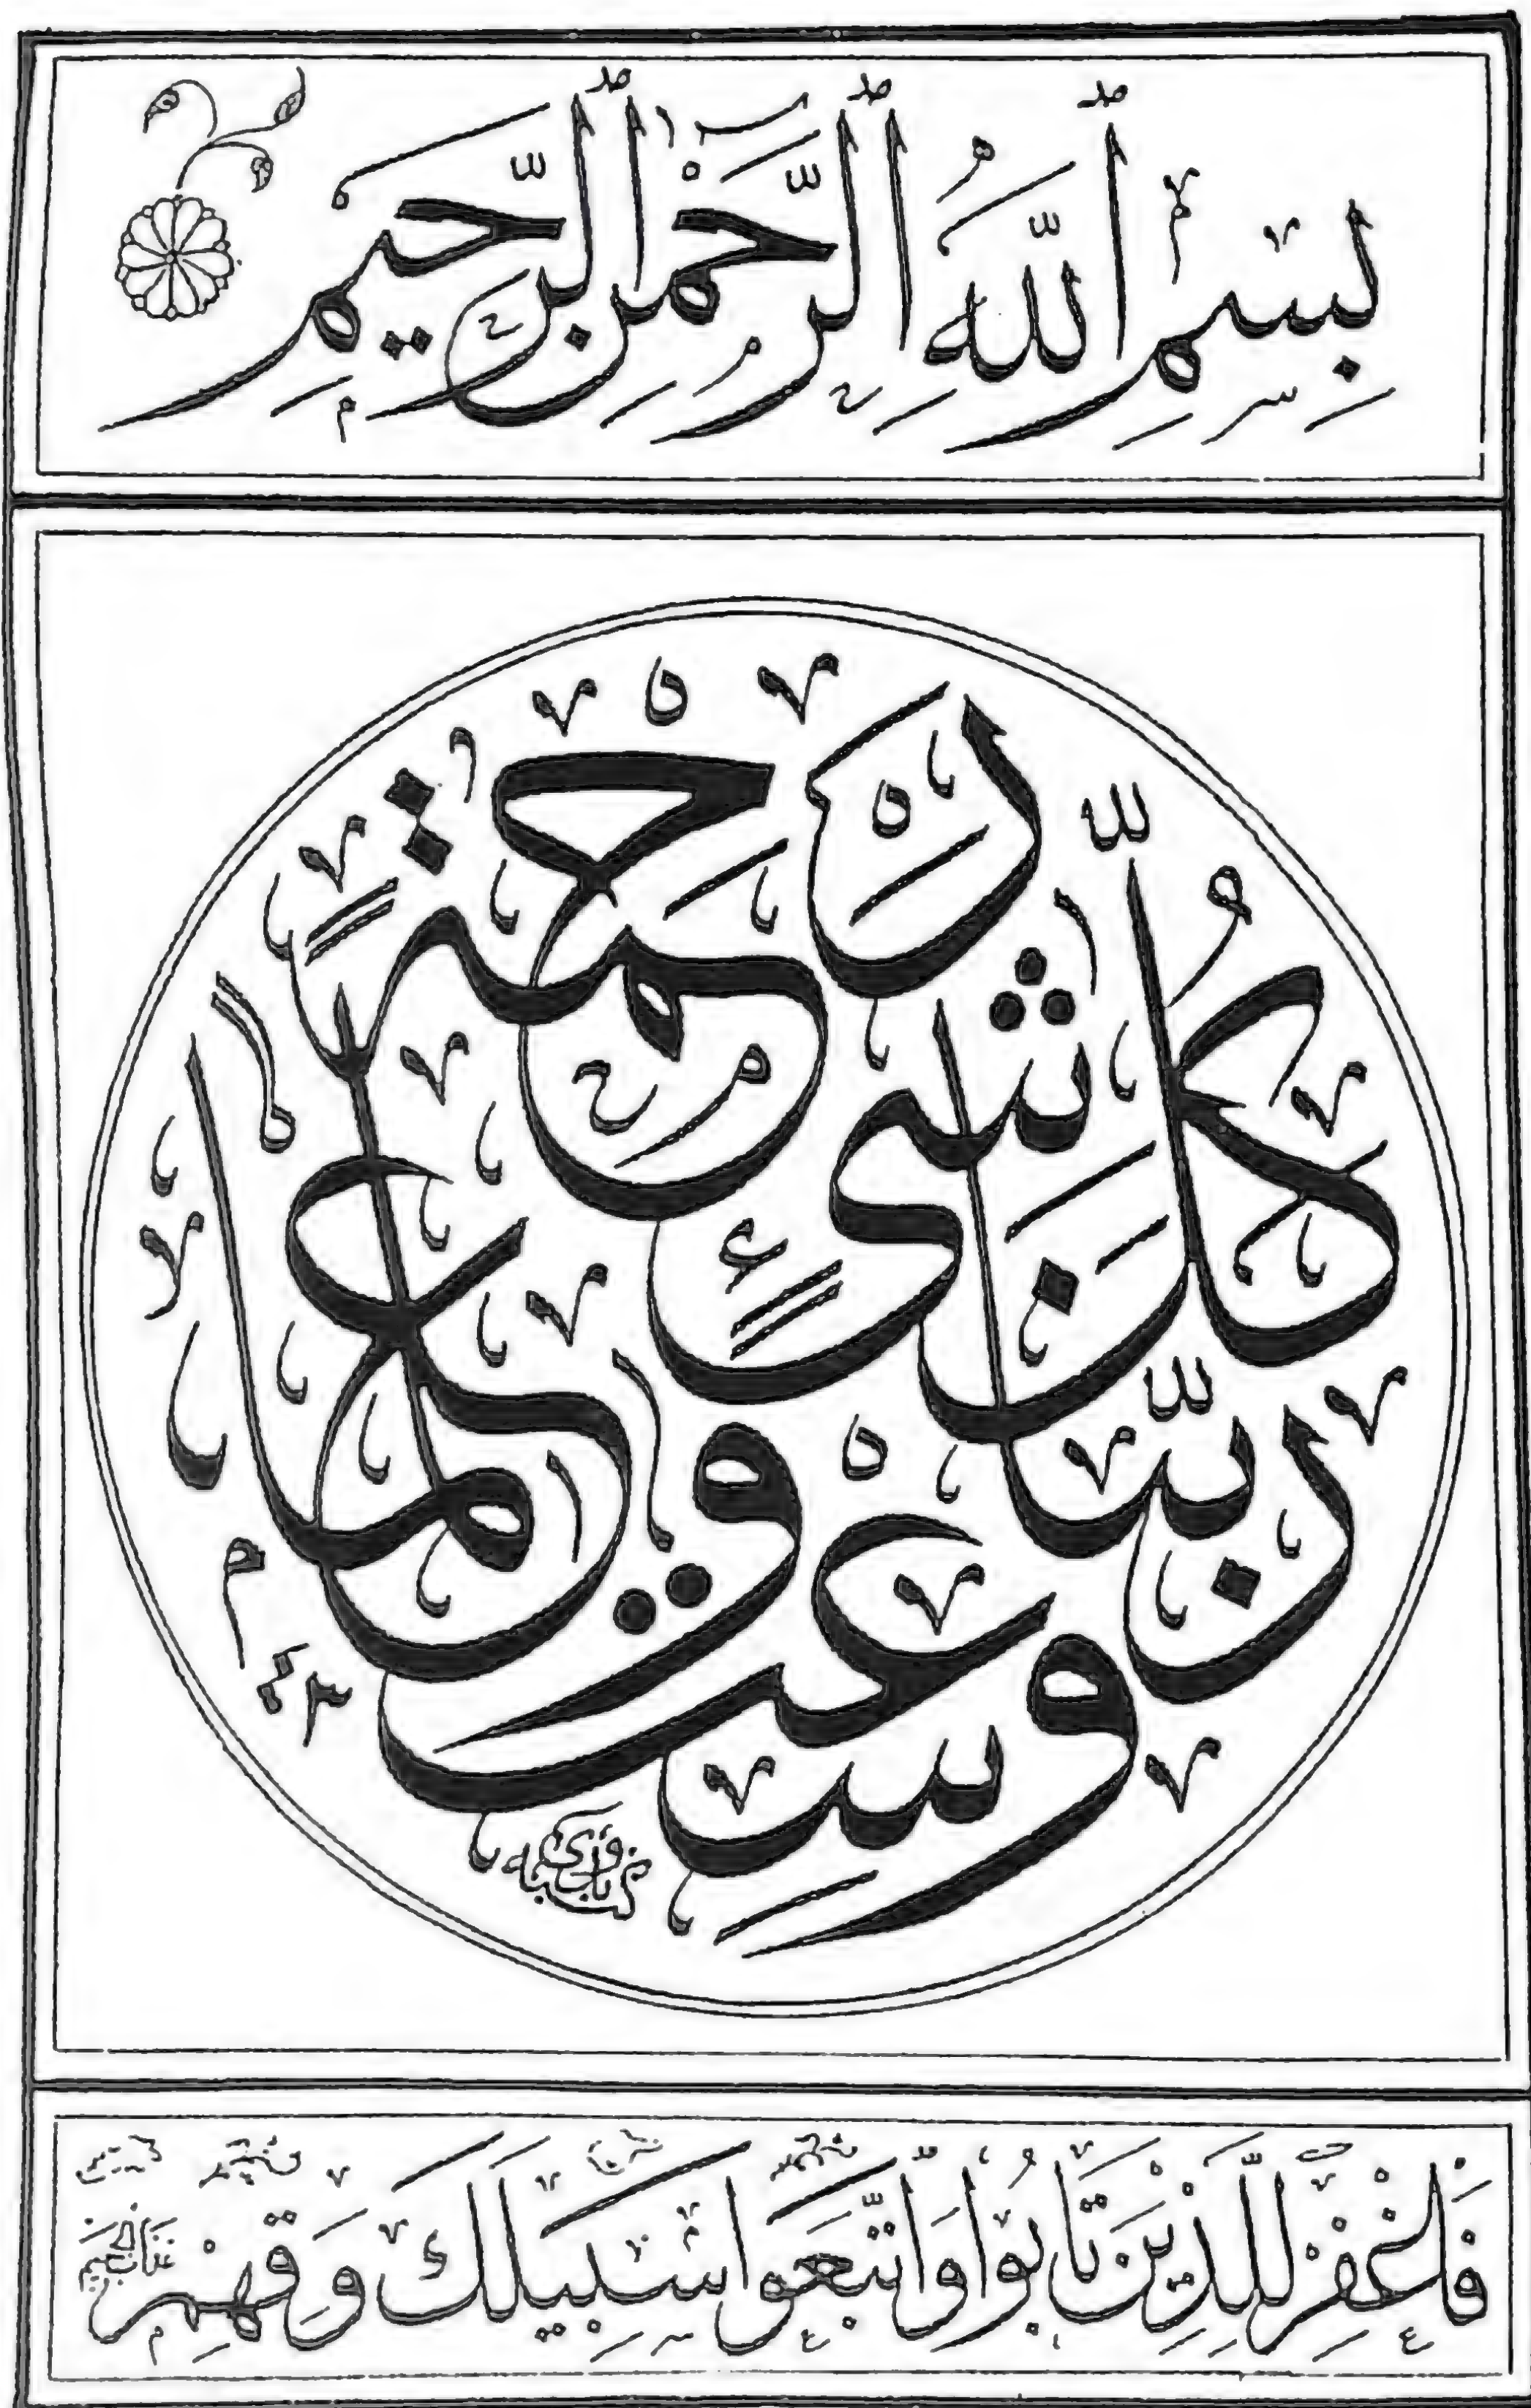 بِسْمِ ٱللَّهِ ٱلرَّحْمٰنِ ٱلرَّحِيمِ
رَبَّنَا وَسِعْتَ كُلَّ شَىْءٍ رَحْمَةً وَعِلْمًا
فَاغْفِرْ لِلَّذِينَ تَابُوا وَاتَّبَعُوا سَبِيلَكَ وَقِهِمْ عَذَابَ الْجَحِيمِ